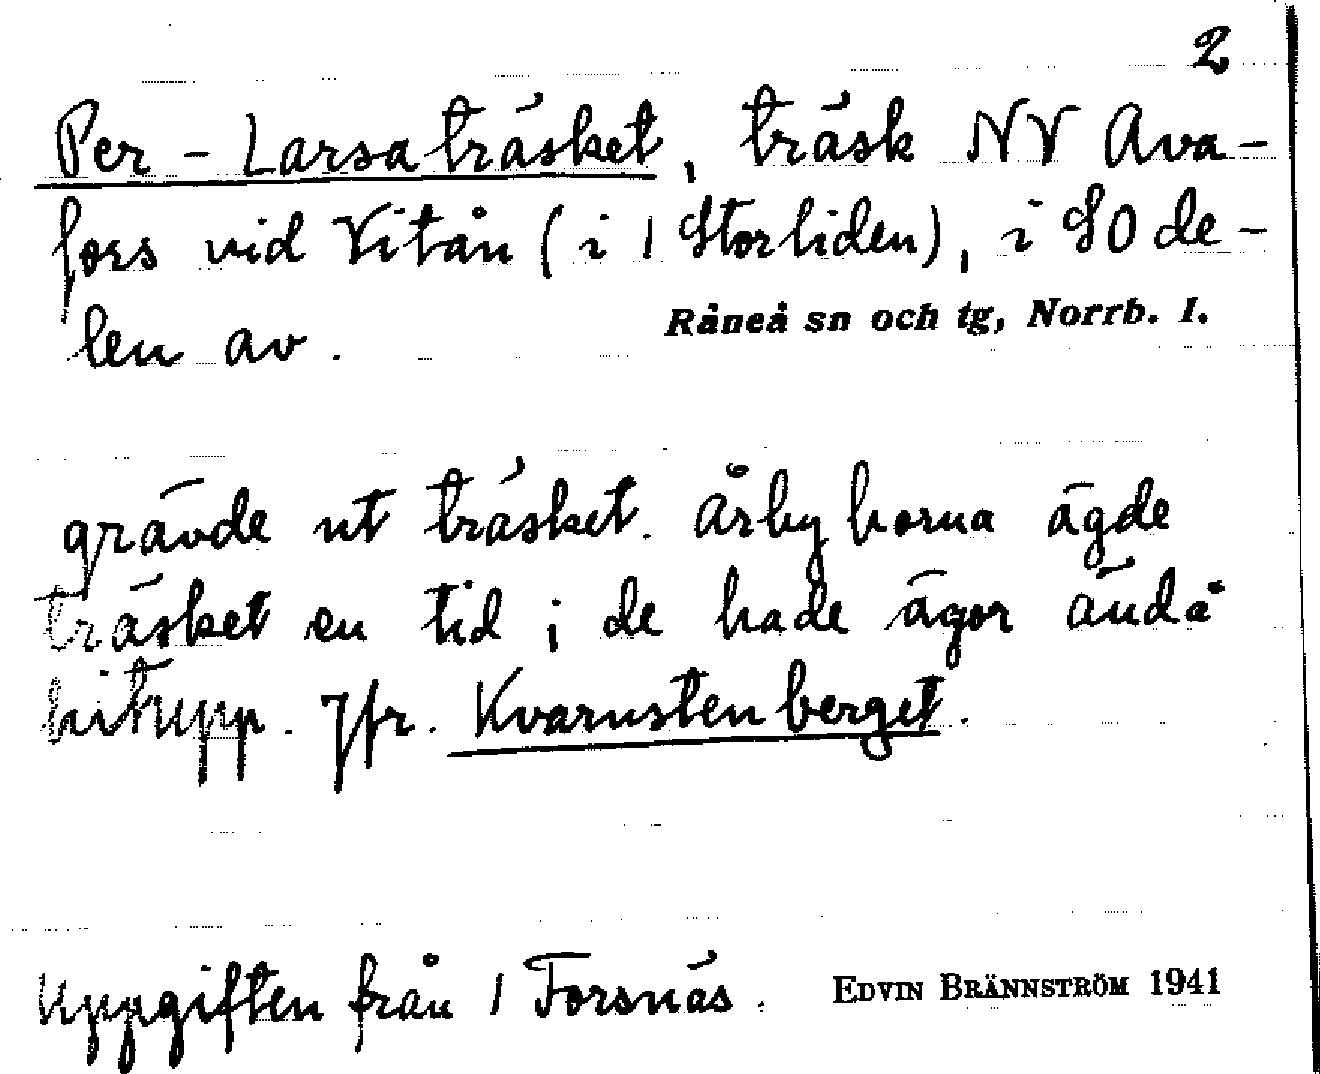 2
Per-Larsaträsket, träsk NV Ava-
fors vid Vitån (i 1 Storliden), i SO de-
len av.
Råneå sn och tg, Norrb. l.
grävde ut träsket. Årbyborna ägde
träsket en tid; de hade ägor ändå
hitupp. Jfr. Kvarnstenberget.
Uppgiften från 1 Forsnäs.
EDVIN BRÄNNSTRÖM 1941